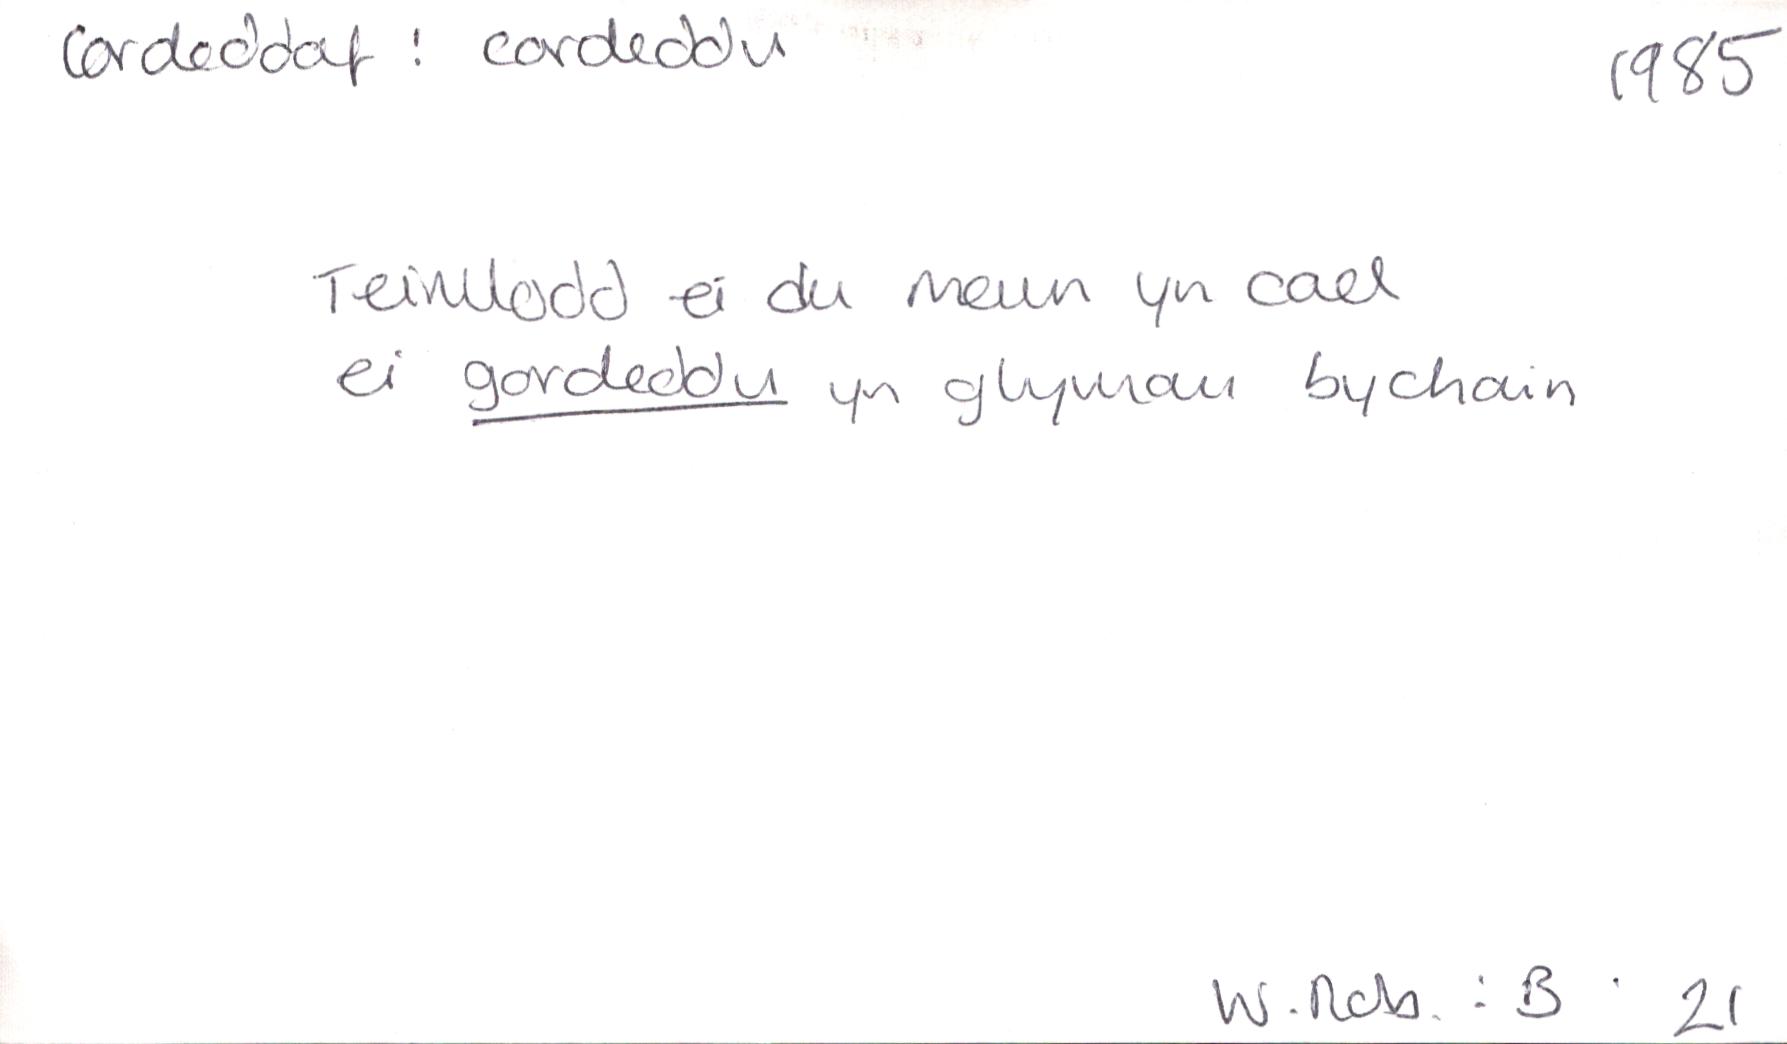 cordeddaf : cordeddu 1985
Teimlodd ei du mewn yn cael
ei gordeddu yn glymau bychain
W. Rob. : B 21